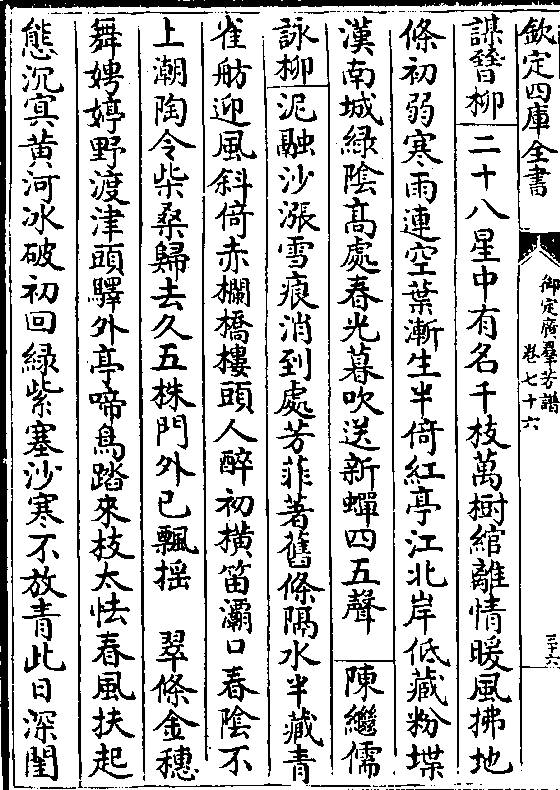 欽定四庫全書
御定廣羣芳譜
卷七十六
三十六
謀詧柳 二十八星中有名千枝萬樹綰離情暖風拂地
條初弱寒雨連空葉漸生半倚紅亭江北岸低藏粉堞
漢南城緑陰髙處春光暮吹送新蟬四五聲 陳繼儒
詠柳 泥融沙漲雪痕消到處芳菲著舊條隔水半藏青
雀舫迎風斜倚赤欄橋樓頭人醉初横笛灞口春陰不
上潮陶令柴桑歸去久五株門外已飄揺 翠條金穗
舞娉婷野渡津頭驛外亭啼鳥踏來枝太怯春風扶起
態沉寘黄河冰破初回緑紫塞沙寒不放青此日深閨